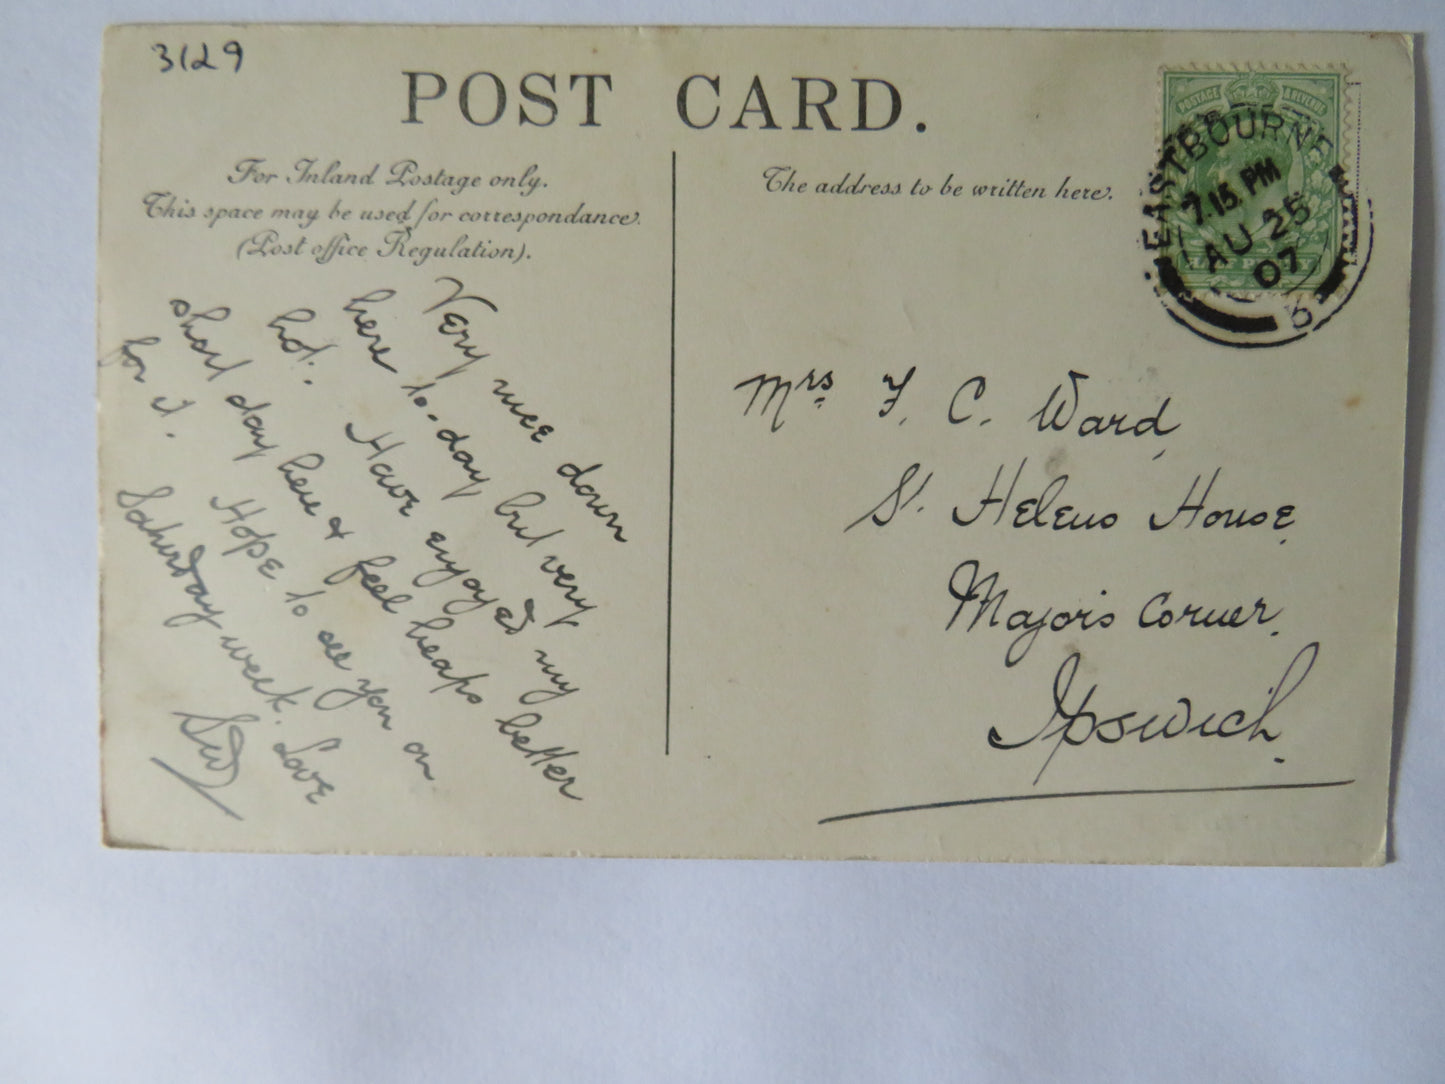 3129
POST CARD.
For Inland Postage only.
This space may be used for correspondance.
(Post office Regulation).
The address to be written here.
POSTAGE & REVENUE
HALF PENNY
EASTBOURNE
7.15 PM
AU 25
07
6
Very nice down
here to-day but very
hot. Have enjoyed my
short day here & feel heaps better
for it. Hope to see you on
Saturday week. Love
Sid
Mrs F. C. Ward,
St. Helens House,
Major's Corner,
Ipswich.